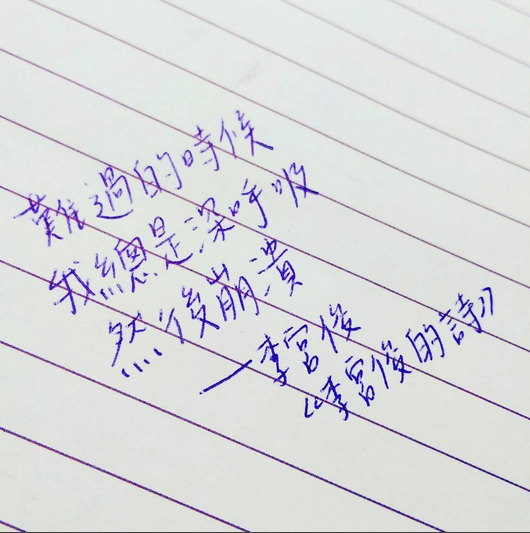 難過的時候
我總是深呼吸
然後崩潰
—李宮俊
《李宮俊的詩》